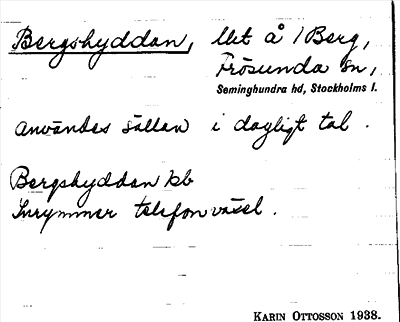 Bergshyddan, llet å 1 Berg,
Frösunda sn,
Seminghundra hd, Stockholms l.
Användes sällan i dagligt tal.
Bergshyddan kb
Inrymmer telefonväxel.
KARIN OTTOSSON 1938.